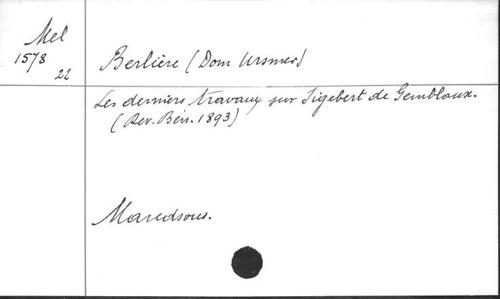 Mel
1578
22
Berlière (Dom Ursmer)
Les derniers travaux sur Sigebert de Gembloux.
(Rev. Bén. 1893)
Maredsous.